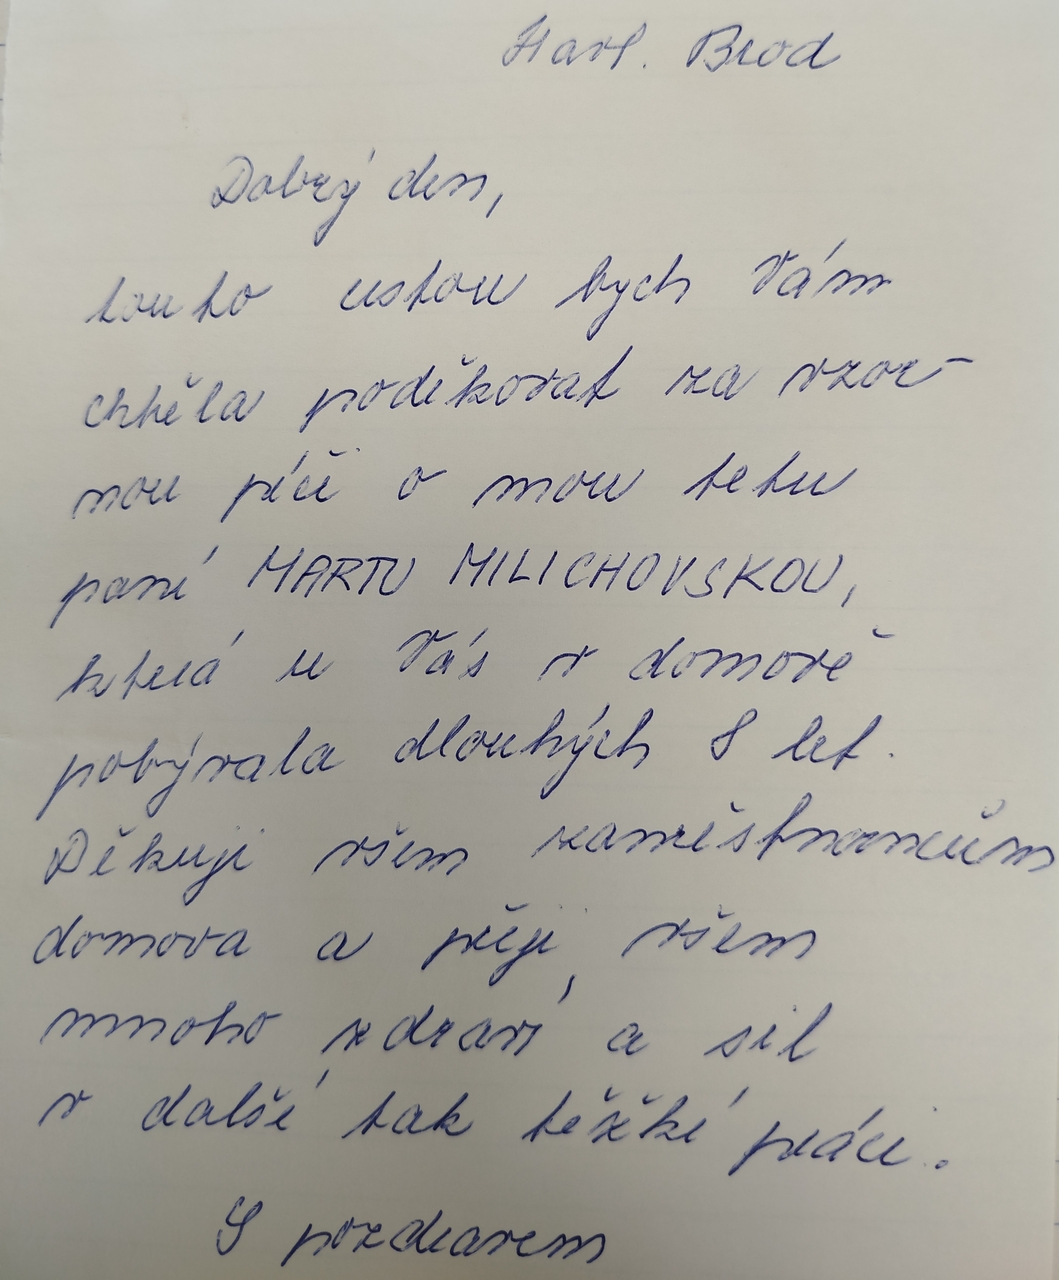 Havl. Brod
Dobrý den,
touto cestou bych Vám
chtěla poděkovat za vzor-
nou péči o mou tetu
paní MARTU MILICHOVSKOU,
která u Vás v domově
pobývala dlouhých 8 let.
Děkuji všem zaměstnancům
domova a přeji všem
mnoho zdraví a sil
v další tak těžké práci.
S pozdravem